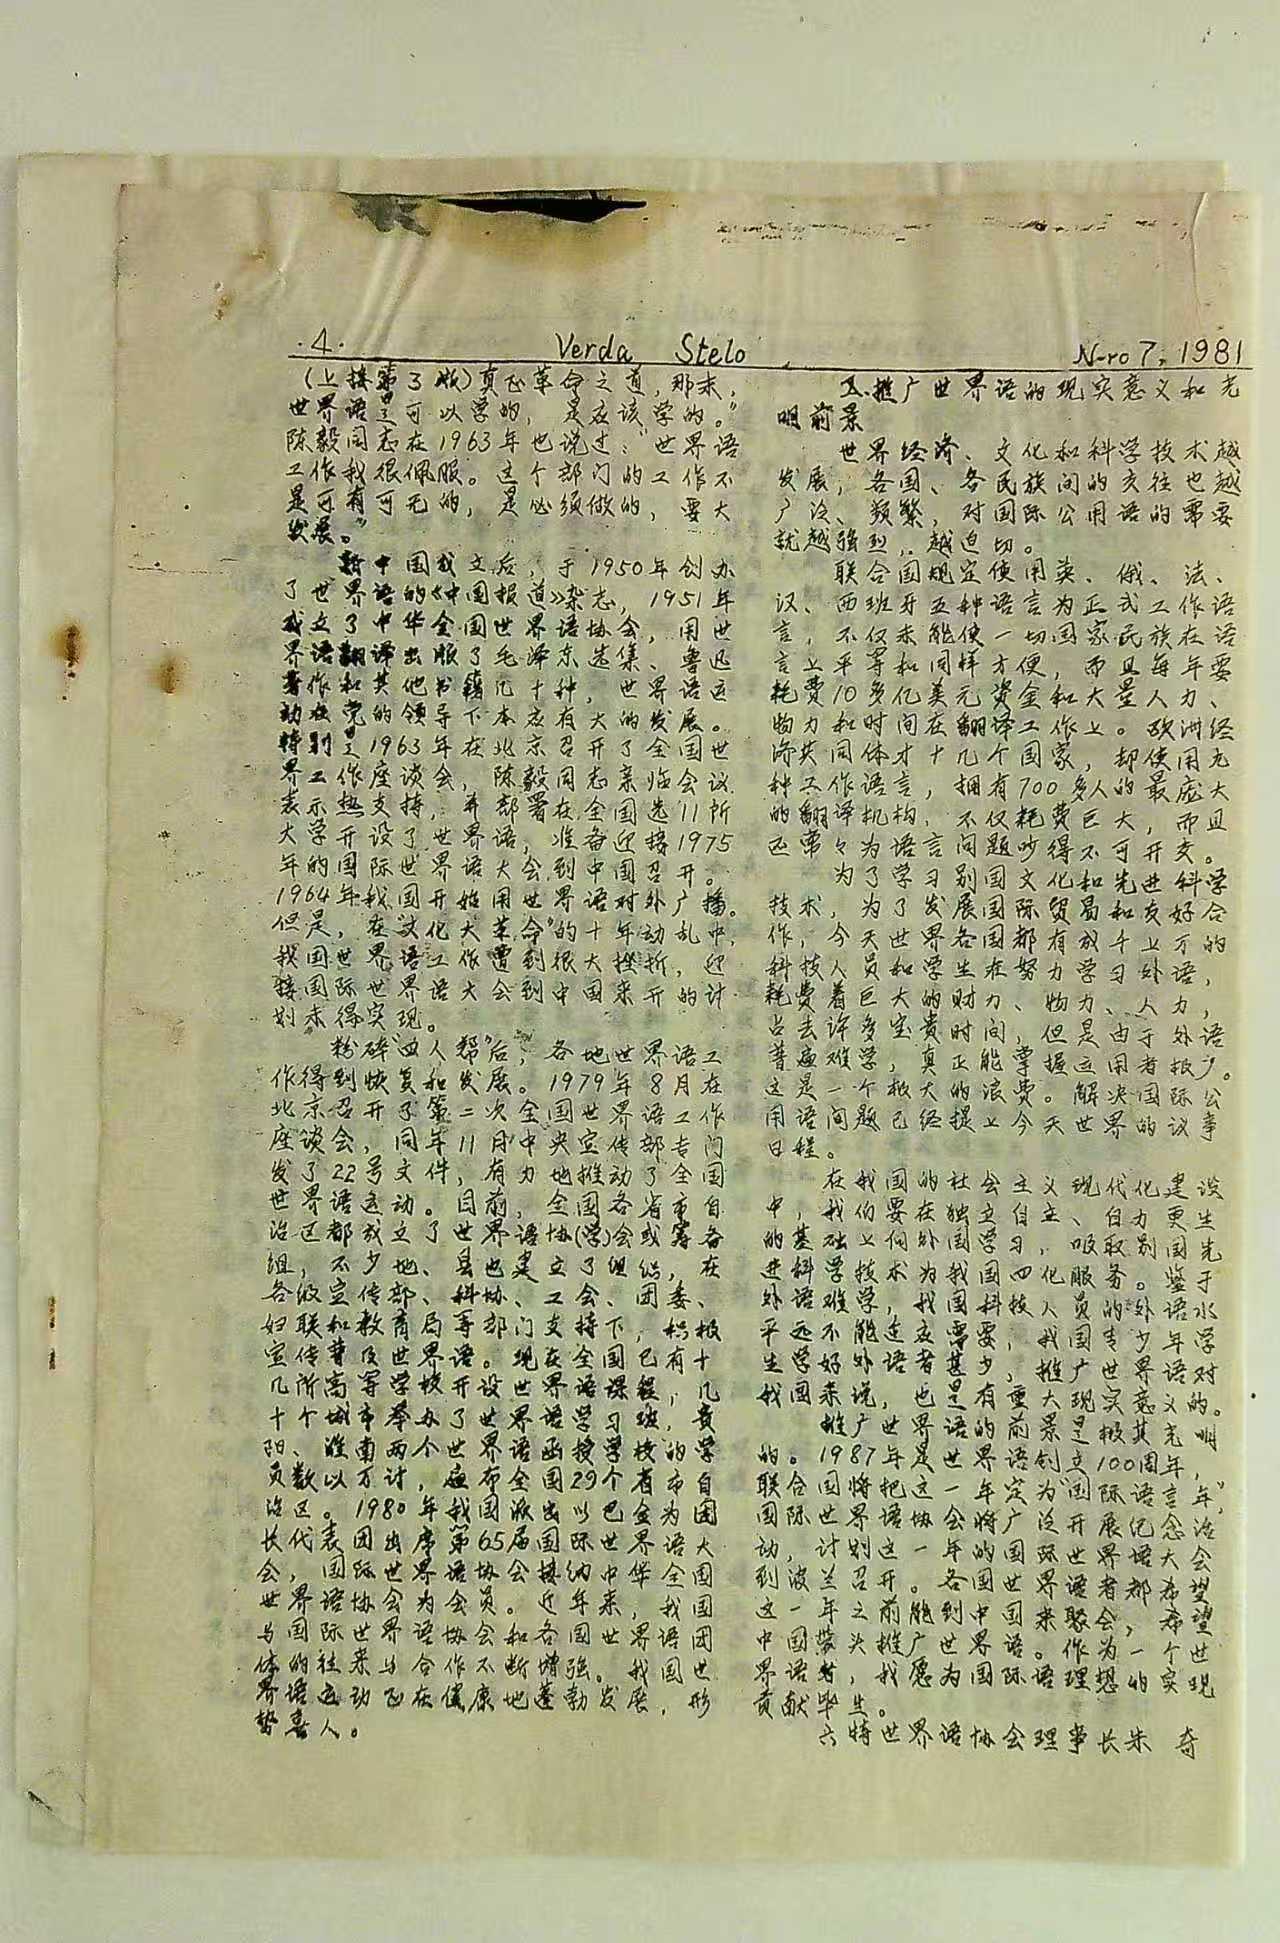 ·4·
Verda Stelo
N-ro 7, 1981
(上接第3版)真正革命之道,那末,
世界语是可以学的,是应该学的。"
陈毅同志在1963年也说过:"世界语
工作我很佩服。这个部门的工作不
是可有可无的,是必须做的,要大
发展。"
新中国成立后,于1950年创办
了世界语的《中国报道》杂志,1951年
成立了中华全国世界语协会,用世
界语翻译出版了毛泽东选集、鲁迅
著作和其他书籍几十种,世界语运
动在党的领导下本应有大的发展。
特别是1963年在北京召开了全国世
界工作座谈会,陈毅同志亲临会议
表示热支持,并部署在全国选11所
大学开设了世界语,准备迎接1975
年的国际世界语大会到中国召开。
1964年我国开始用世界语对外广播。
但是,在"文化大革命"的十年动乱中,
我国世界语工作遭到很大挫折,迎
接国际世界语大会到中国来开的计
划未得实现。
粉碎"四人帮"后,各地世界语工
作得到恢复和发展。1979年8月在
北京召开了第二次全国世界语工作
座谈会,同年11月中央宣传部专门
发了22号文件,有力地推动了全国
世界语运动。目前,全国各省市自
治区都成立了世界语协(学)会或筹备
组,不少地、县也建立了组织,在
各级宣传部、科协、工会、团委、
妇联和教育局等部门支持下,积极
宣传普及世界语。现在全国已有十
几所高等学校开设世界语课程,几
十个城市举办了世界语学习班,贵
阳、淮南两个世界语函授学校的学
员数以万计,遍布全国29个省市自
治区。1980年我国派出以巴金为团
长代表团出席第65届国际世界语大
会,国际世界语协会接纳中华全国
世界语协会为会员。近年来,我国
与国际世界语协会和各国世界语团
体的往来与合作不断增强。我国世
界语运动正在健康地蓬勃发展,形
势喜人。
五.推广世界语的现实意义和光
明前景
世界经济、文化和科学技术越
发展,各国、各民族间的交往也越
广泛、频繁,对国际公用语的需要
就越强烈,越迫切。
联合国规定使用英、俄、法、
汉、西班牙五种语言为正式工作语
言,不仅未能使一切国家民族在语
言上平等和同样方便,而且每年要
耗费10多亿美元资金和大量人力、
物力和时间在翻译工作上。欧洲经
济共同体才十几个国家,却使用九
种工作语言,拥有700多人的最庞大
的翻译机构,不仅耗费巨大,而且
还常々为语言问题吵得不可开交。
为了学习别国文化和先进科学
技术,为了发展国际贸易和友好合
作,今天世界各国都有成千上万的
科技人员和学生在努力学习外语,
耗费着巨大的财力、物力、人力,
占去许多宝贵时间,但是由于外语
普遍难学,真正能掌握运用者极少。
这是一个极大的浪费。解决国际公
用语问题已经提上今天世界的议事
日程。
在我国的社会主义现代化建设
中,我们要在独立自主、自力更生
的基础上向外国学习,吸取别国先
进科学技术为我国四化服务。鉴于
外语难学,我国科技人员的外语水
平远不能适应需要,我国青少年学
生学好外语者甚少,推广世界语对
我国来说,也是有重大现实意义的。
推广世界语的前景是极其光明
的。1987年是世界语创立100周年,
联合国将把这一年定为"国际语言年",
国际世界语协会将广泛开展纪念活
动,计划这一年的国际世界语大会
到波兰召开。各国世界语者都希望
这一年之前能到中国来聚会,希望
中国带头推广世界语。作为一个世
界语者,我愿为国际语理想的实现
贡献毕生。
六特世界语协会理事长朱 奇